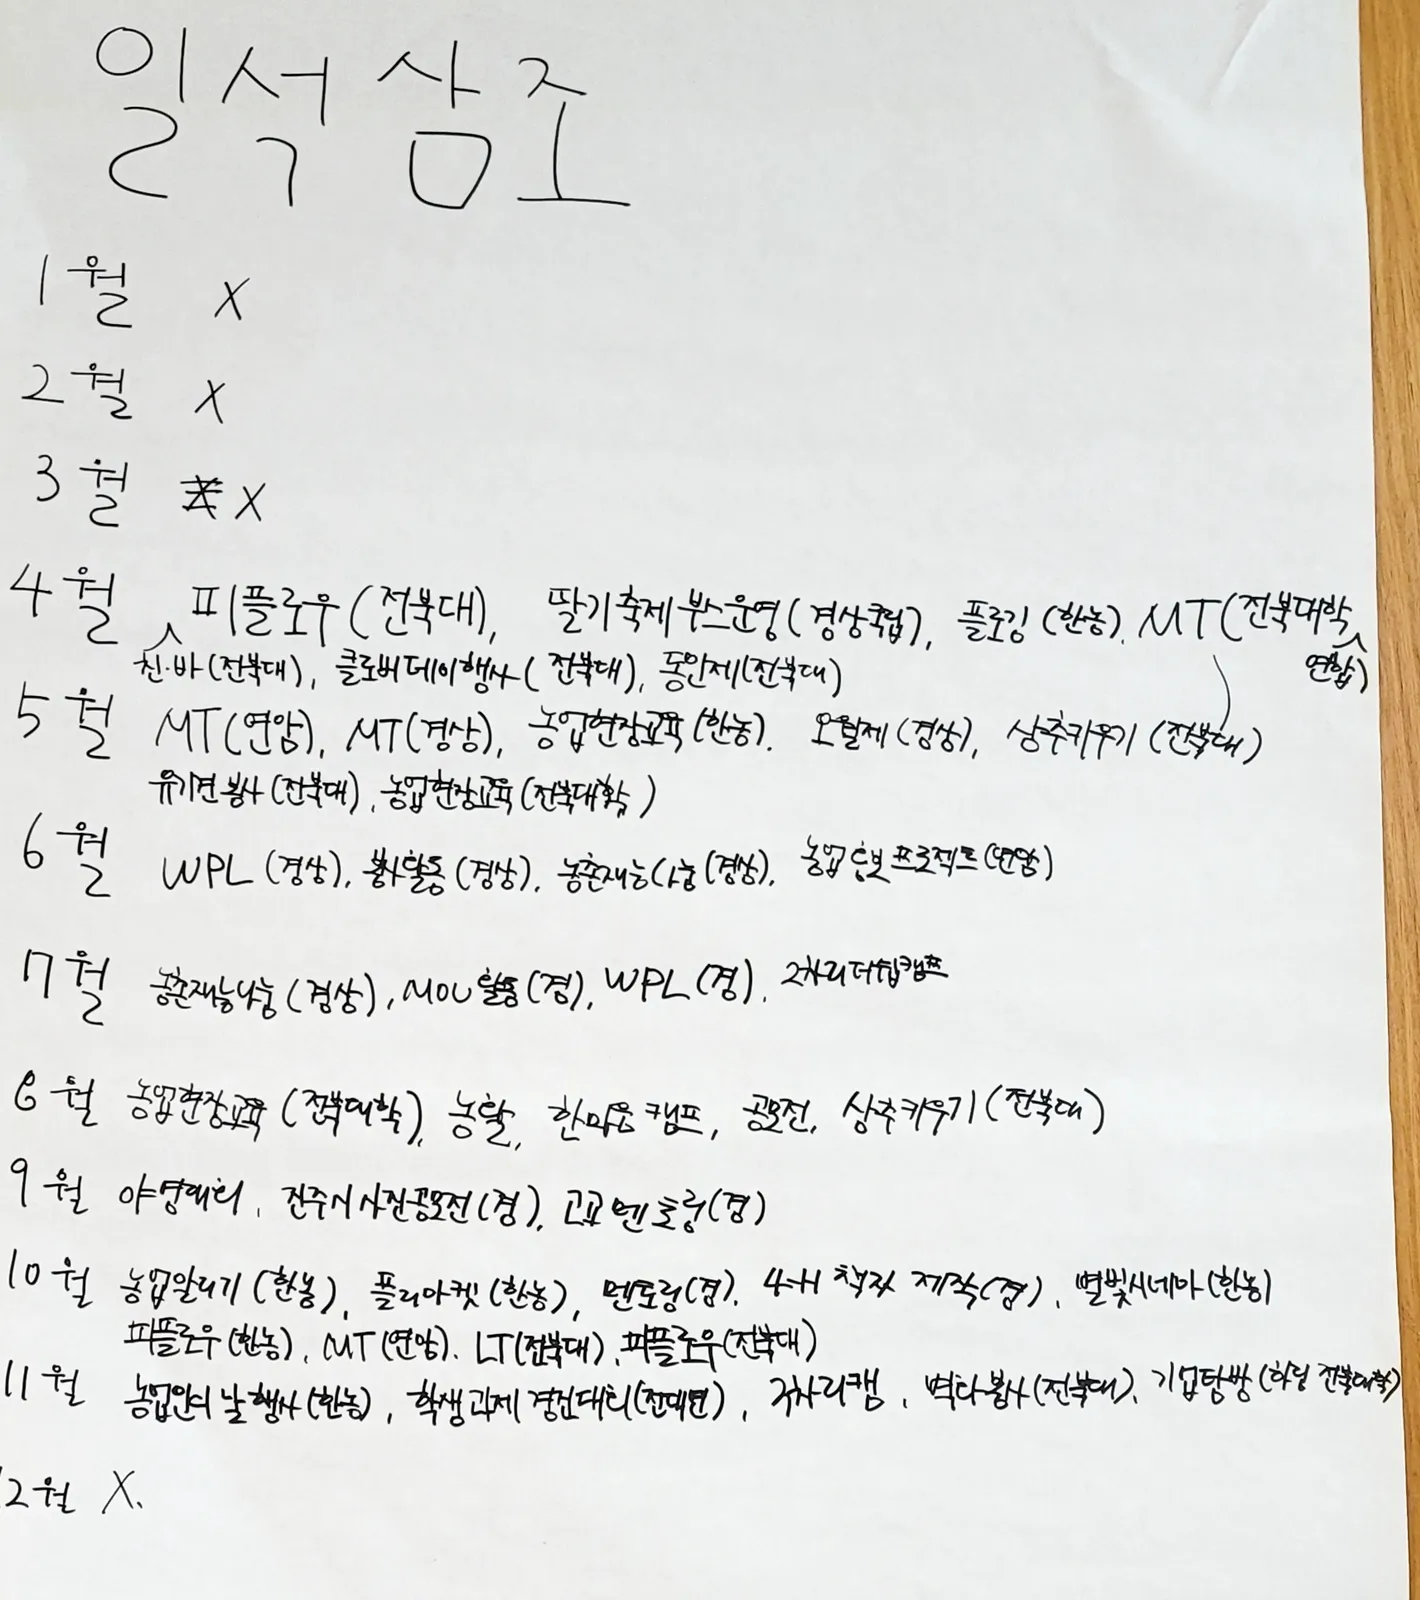 일석삼조
1월 X
2월 X
3월 X
4월 피플로우(전북대), 딸기축제부스운영(경상국립), 플로깅(한농), MT(전북대학
친·바(전북대), 클로버데이행사(전북대), 동안제(전북대) 연합)
5월 MT(연암), MT(경상), 농업현장교육(한농), 오월제(경상), 상추키우기(전북대)
유기견봉사(전북대), 농업현장교육(전북대학)
6월 WPL(경상), 봉사활동(경상), 농촌재능나눔(경상), 농업 프로젝트(연암)
7월 농촌재능나눔(경상), MOU활동(경), WPL(경), 2차리더쉽캠프
8월 농업현장교육(전북대학), 농활, 한마음캠프, 공모전, 상추키우기(전북대)
9월 야영대회, 진주시사진공모전(경), 고교멘토링(경)
10월 농업알리기(한농), 플리마켓(한농), 멘토링(경), 4-H 책자 제작(경), 별빛시네마(한농)
피플로우(한농), MT(연암), LT(전북대), 피플로우(전북대)
11월 농업인의 날 행사(한농), 학생과제 경진대회(전대연), 3차리캠, 벽화봉사(전북대), 기업탐방(하림 전북대학)
12월 X.